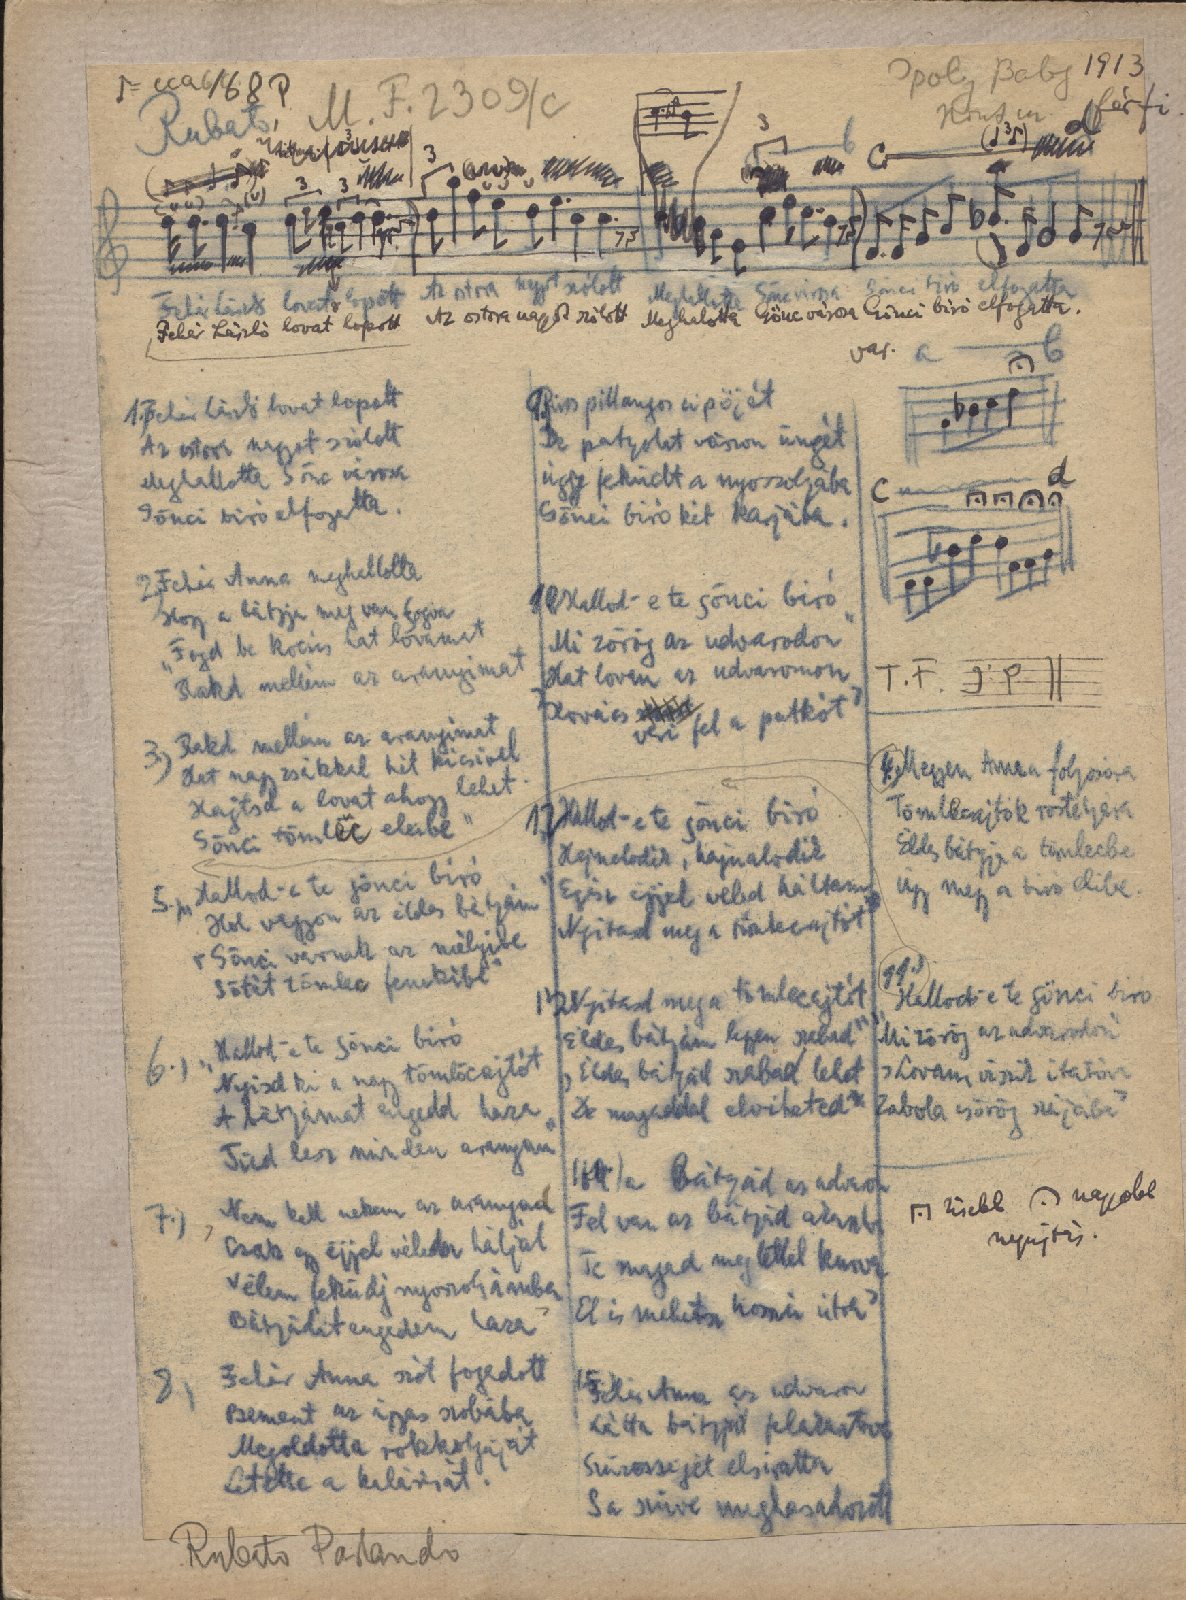 Rubato, M. F. 2309/c
Ipoly Baby 1913
Hont m. férfi
Fehér László lovat lopott Az ostora nagyot szólott Meghallotta Gönc városa Gönci biró elfogatta
Fehér László lovat lopott Az ostora nagyot szólott Meghalotta Gönc városa Gönci biró elfogatta.
var. a b
c d
T. F.
1.) Fehér László lovat lopott
Az ostora nagyot szólott
Meghallotta Gönc városa
Gönci biró elfogatta.
2. Fehér Anna meghallotta
Hogy a bátyja meg van fogva
"Fogd be kocsis hat lovamat
Rakd mellém az aranyimat
3.) Rakd mellém az aranyimat
Hat nagy zsákkal hét kicsivel
Hajtsd a lovat ahogy lehet
Gönci tömlöc elejbe"
5.) Hallod-e te gönci biró
Hol vagyon az édes bátyám"
Gönci várnak az mélyibe
Sötét tömlec fenekibe"
6.) "Hallod-e te gönci biró
Nyisd ki a nagy tömlöcajtót
A bátyámat engedd haza
Tiéd lesz minden aranyam"
7.) Nem kell nekem az aranyad
Csak egy éjjel vélem háljál
Vélem feküdj nyoszolyámba
Bátyádat engedem haza"
8) Fehér Anna szót fogadott
Bement az ágyas szobába
Megoldotta rokkolyáját
Letette a kalárisát.
9.) Piros pillangos cipőját
De patyolat vászon üngét
úgy feküdt a nyoszolyába
Gönci biró két karjába.
10. Hallod-e te gönci biró
Mi zörög az udvarodon"
Hat lovam az udvaromon
Kovács veri fel a patkót"
Hallod-e te gönci biró
Hajnalodik, hajnalodik
Egész éjjel véled háltam
Nyitasd meg a tömlecajtót"
Nyitasd meg a tömlecajtót
Édes bátyám legyen szabad"
Édes bátyád szabad lehet
De magaddal elviheted"
14.) a Bátyád az udvaron
Fel van az bátyád akasztva
Te magad meg lettél kurva
El is mehetsz hosszú útra"
15. Fehér Anna az udvaron
Látta bátyját felakasztva
Szüzességét elsiratta
S a szíve meghasadozott
4.) Megyen Anna folyosóra
Tömlecajtók rostélyára
Édes bátyja a tömlecbe
Úgy megy a biró elibe.
11.) Hallod-e te gönci biró
Mi zörög az udvarodon
Lovam viszik itatóra
Zabola csörög szájába"
kisebb nagyobb
nyújtás.
Rubato Parlando